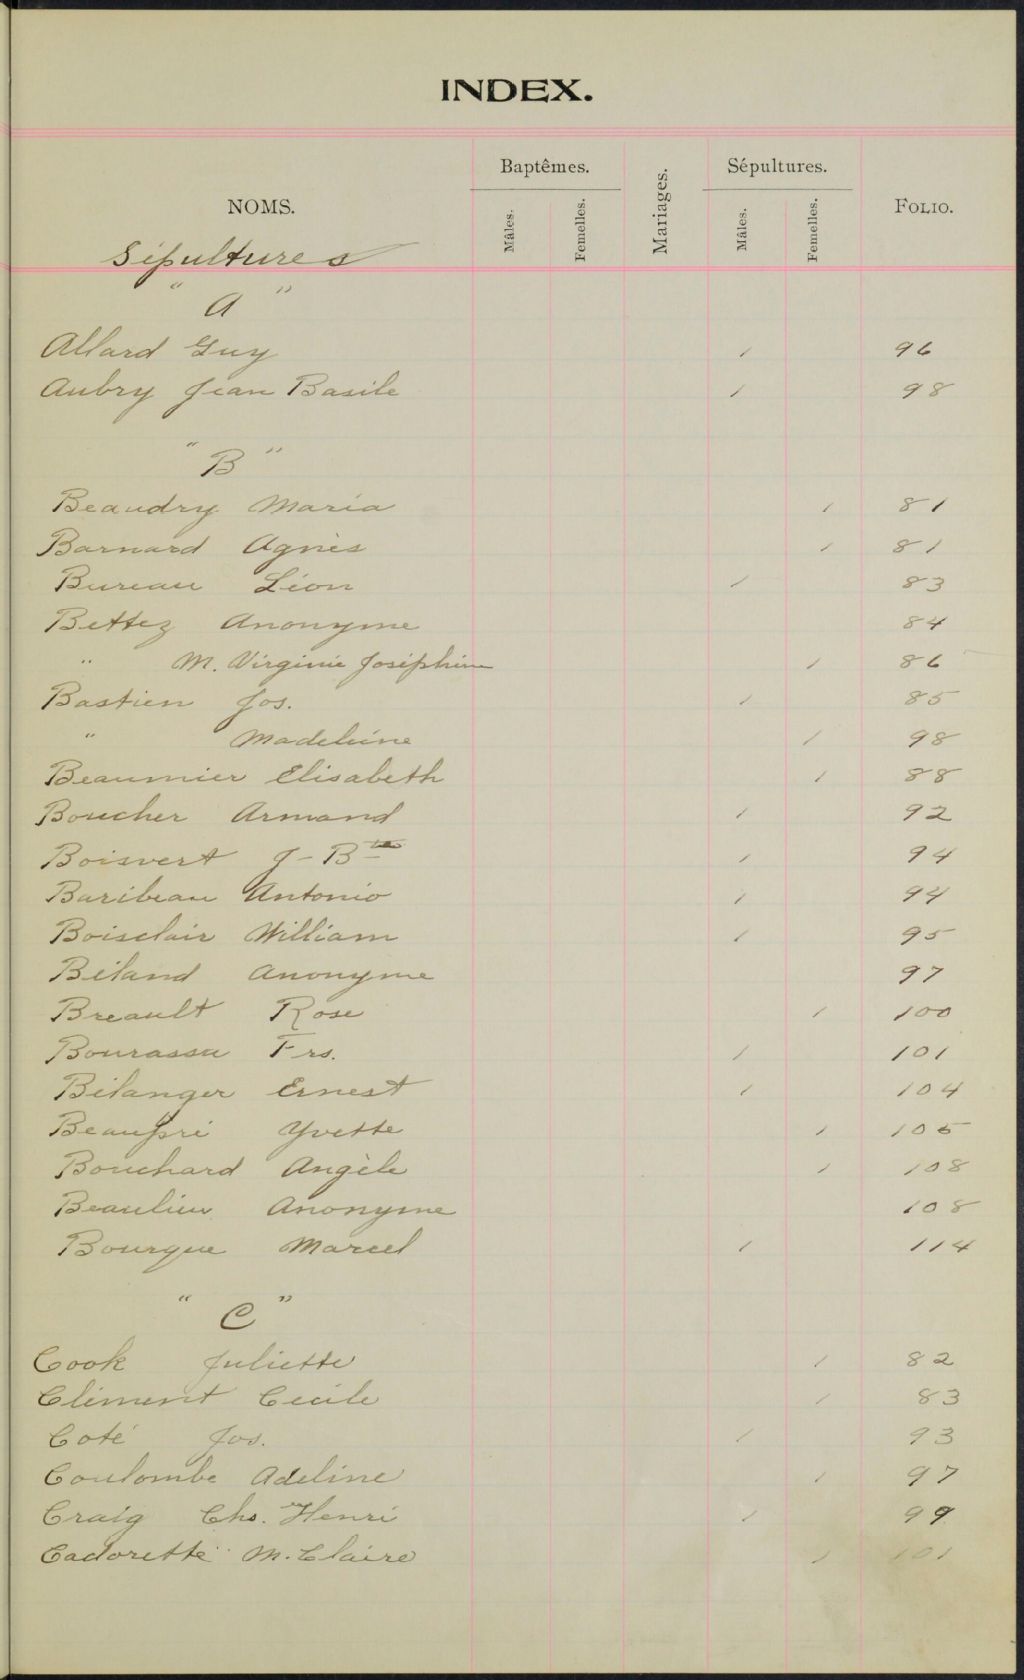 INDEX.
NOMS. Baptêmes. Mâles. Femelles. Mariages. Sépultures. Mâles. Femelles. FOLIO.
Sépultures
" A "
Allard Guy / 96
Aubry Jean Basile / 98
" B "
Beaudry Maria / 81
Barnard Agnès / 81
Bureau Léon / 83
Bettez Anonyme 84
" M. Virginie Joséphine / 86
Bastien Jos. / 85
" Madeleine / 98
Beaumier Elisabeth / 88
Boucher Armand / 92
Boisvert J-Bte / 94
Baribeau Antonio / 94
Boisclair William / 95
Béland Anonyme 97
Breault Rose / 100
Bourassa Frs. / 101
Bélanger Ernest / 104
Beaupré Yvette / 105
Bouchard Angèle / 108
Beaulieu Anonyme 108
Bourque Marcel / 114
" C "
Cook Juliette / 82
Clément Cécile / 83
Coté Jos. / 93
Coulombe Adeline / 97
Craig Chs. Henri / 99
Cadorette M. Claire / 101